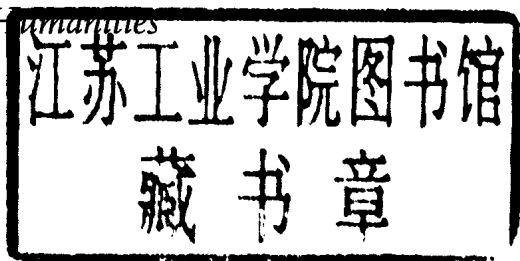 umanities
江苏工业学院图书馆
藏书章